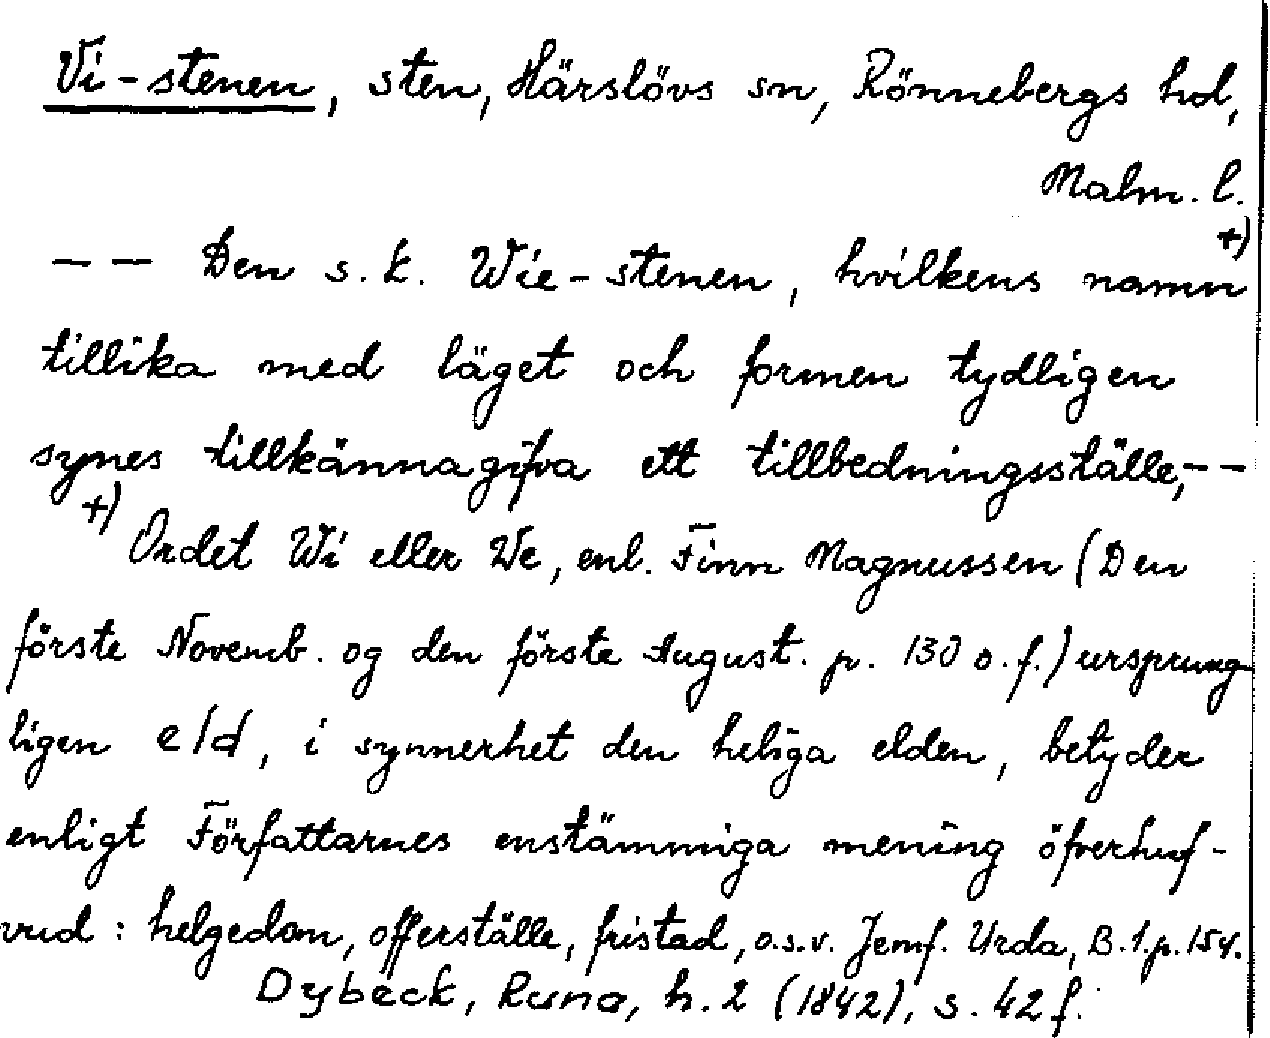 Vi-stenen, sten, Härslövs sn, Rönnebergs hd,
Malm. l.
–– Den s.k. Wie-stenen, hvilkens namn +)
tillika med läget och formen tydligen
synes tillkännagifva ett tillbedningsställe,––
+) Ordet Wi eller We, enl. Finn Magnussen (Den
förste Novemb. og den förste August. p. 130 o.f.) ursprung-
ligen eld, i synnerhet den heliga elden, betyder
enligt Författarnes enstämmiga mening öfverhuf-
vud: helgedom, offerställe, fristad, o.s.v. Jemf. Urda, B.1.p.154.
Dybeck, Runa, h.2 (1842), s. 42 f.